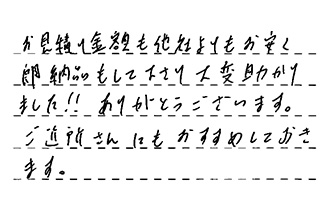 お見積り金額も他社よりもお安く
即納品もして下さり大変助かり
ました!! ありがとうございます。
ご近所さんにもおすすめしておき
ます。